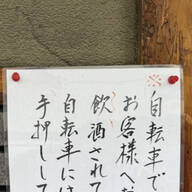 ※自転車で
お客様へお
飲酒されて
自転車には
手押しして